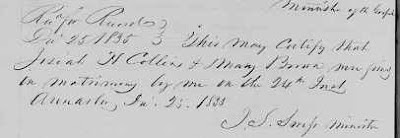 Minister of the Gospel
Jan 25. 1835 } This may certify that
Josiah H Collins & Mary Brown were joined
in matrimony by me on the 24th Inst
Jan. 25. 1835
J. S. Minister